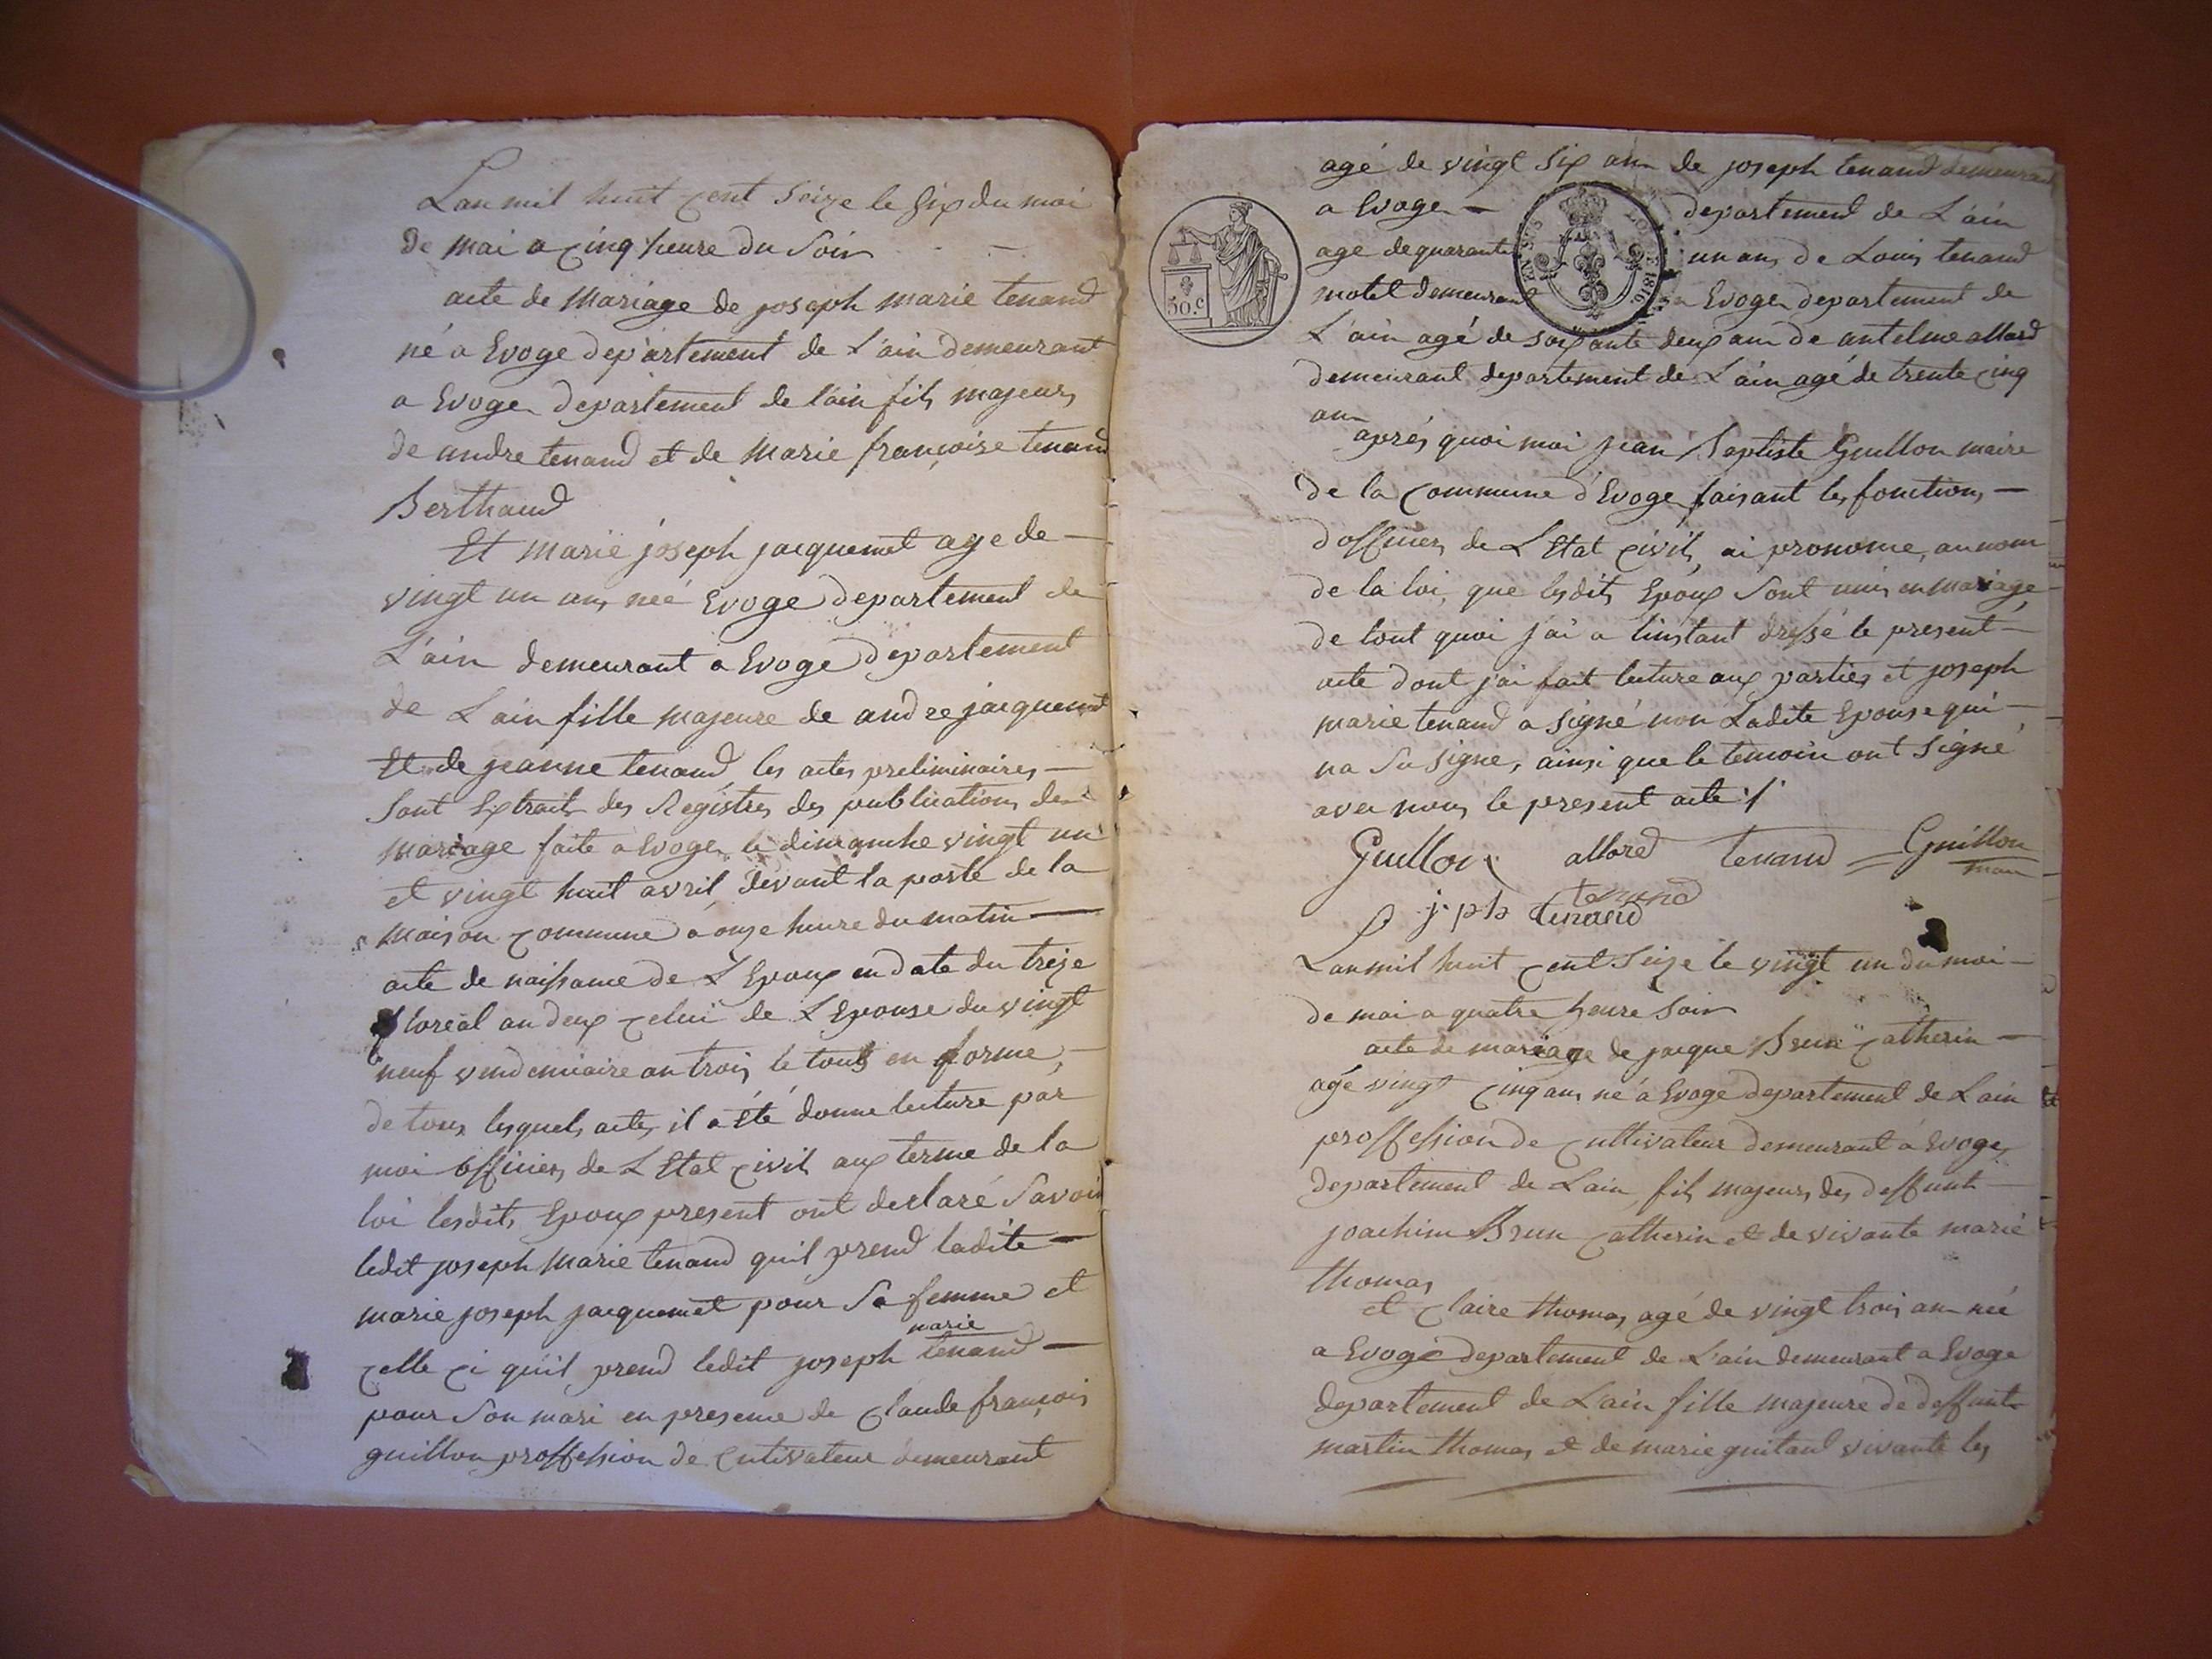 Lan mil huit cent Seize le Six du moi
de mai a cinq heure du Soir
acte de Mariage de joseph marie tenand
né a Evoge departement de L'ain demeurant
a Evoge departement de lain fils majeur
de andre tenand et de Marie françoise tenand
Berthaud
Et Marie joseph jacquemet age de
vingt un ans née Evoge departement de
L'ain demeurant a Evoge departement
de L'ain fille majeure de andre jacquemet
Et de jeanne tenand, les actes preliminaires
Sont Extraits des Registres des publications de
mariage faite a Evoge le dimanche vingt un
et vingt huit avril, devant la porte de la
maison commune a onze heure du matin
acte de naissance de L'Epoux en date du treize
floréal an deux celui de L'Epouse du vingt
neuf vendemiaire an trois le tout en forme,
de tous lesquels actes il a été donne lecture par
moi officier de L'Etat civil aux terme de la
loi lesdits Epoux present ont declaré Savoir
ledit joseph Marie tenand quil prend ladite
marie joseph jacquemet pour Sa femme et
celle ci quil prend ledit joseph marie tenand
pour Son mari en presence de Claude françois
guillon proffession de Cutivateur demeurant
agé de vingt Six ans de joseph tenand demeurant
a Evoge departement de L'ain
age de quarante un ans de Louis tenand
motet demeurant a Evoge departement de
L'ain agé de Soixante deux ans de antelme allard
demeurant departement de L'ain agé de trente cinq
ans
50.c
1816
après quoi moi jean Baptiste Guillon maire
de la Commune d'Evoge faisant les fonctions
d'officier de L'Etat civil, ai prononce, au nom
de la loi, que lesdits Epoux Sont unis en mariage
de tout quoi j'ai a linstant dressé le present
acte dont j'ai fait lecture aux parties et joseph
marie tenand a signé non Ladite Epouse qui
na Su signe, ainsi que le temoin ont Signé
avec nous le present acte
Guillon allard tenand Guillon
maire
tenand
j. ph tenand
Lan mil huit cent Seize le vingt un du moi
de mai a quatre heure Soir
acte de mariage de jacque Brun Catherin
agé vingt cinq ans né a Evoge departement de Lain
proffession de Cultivateur demeurant a Evoge
departement de Lain, fils majeur des deffunt
joachim Brun Catherin et de vivante marie
thomas
et Claire thomas agé de vingt trois ans née
a Evoge departement de L'ain demeurant a Evoge
departement de L'ain fille majeure de deffunt
martin thomas et de marie guitant vivante les